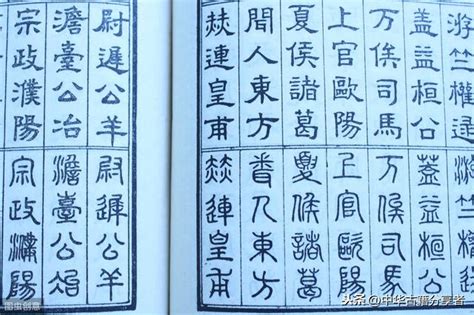 游竺權逯
游竺權逯
蓋益桓公
蓋益桓公
万俟司馬
万俟司馬
上官歐陽
上官歐陽
夏侯諸葛
夏侯諸葛
聞人東方
聞人東方
赫連皇甫
赫連皇甫
尉遲公羊
尉遲公羊
澹臺公冶
澹臺公冶
宗政濮陽
宗政濮陽
图虫创意
头条 @中华古籍分享者